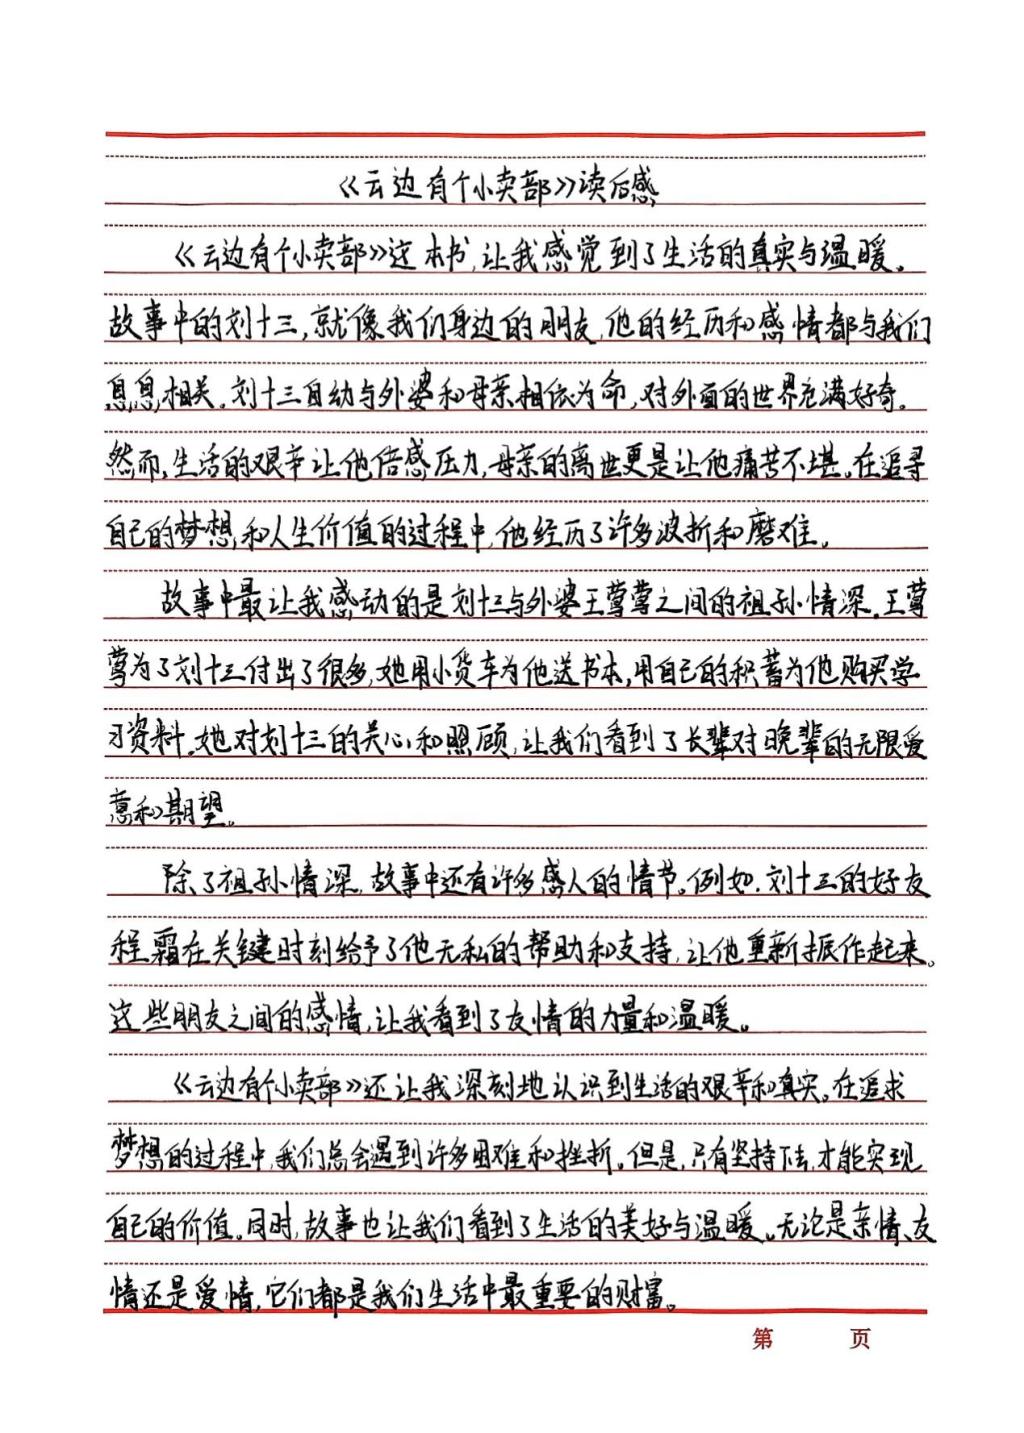 《云边有个小卖部》读后感
《云边有个小卖部》这本书,让我感觉到了生活的真实与温暖。
故事中的刘十三,就像我们身边的朋友,他的经历和感情都与我们
息息相关。刘十三自幼与外婆和母亲相依为命,对外面的世界充满好奇。
然而,生活的艰辛让他倍感压力,母亲的离世更是让他痛苦不堪。在追寻
自己的梦想和人生价值的过程中,他经历了许多波折和磨难。
故事中最让我感动的是刘十三与外婆王莺莺之间的祖孙情深。王莺
莺为了刘十三付出了很多,她用小货车为他送书本,用自己的积蓄为他购买学
习资料。她对刘十三的关心和照顾,让我们看到了长辈对晚辈的无限爱
意和期望。
除了祖孙情深,故事中还有许多感人的情节。例如,刘十三的好友
程霜在关键时刻给予了他无私的帮助和支持,让他重新振作起来。
这些朋友之间的感情,让我看到了友情的力量和温暖。
《云边有个小卖部》还让我深刻地认识到生活的艰辛和真实。在追求
梦想的过程中,我们总会遇到许多困难和挫折。但是,只有坚持下去,才能实现
自己的价值。同时,故事也让我们看到了生活的美好与温暖。无论是亲情、友
情还是爱情,它们都是我们生活中最重要的财富。
第 页